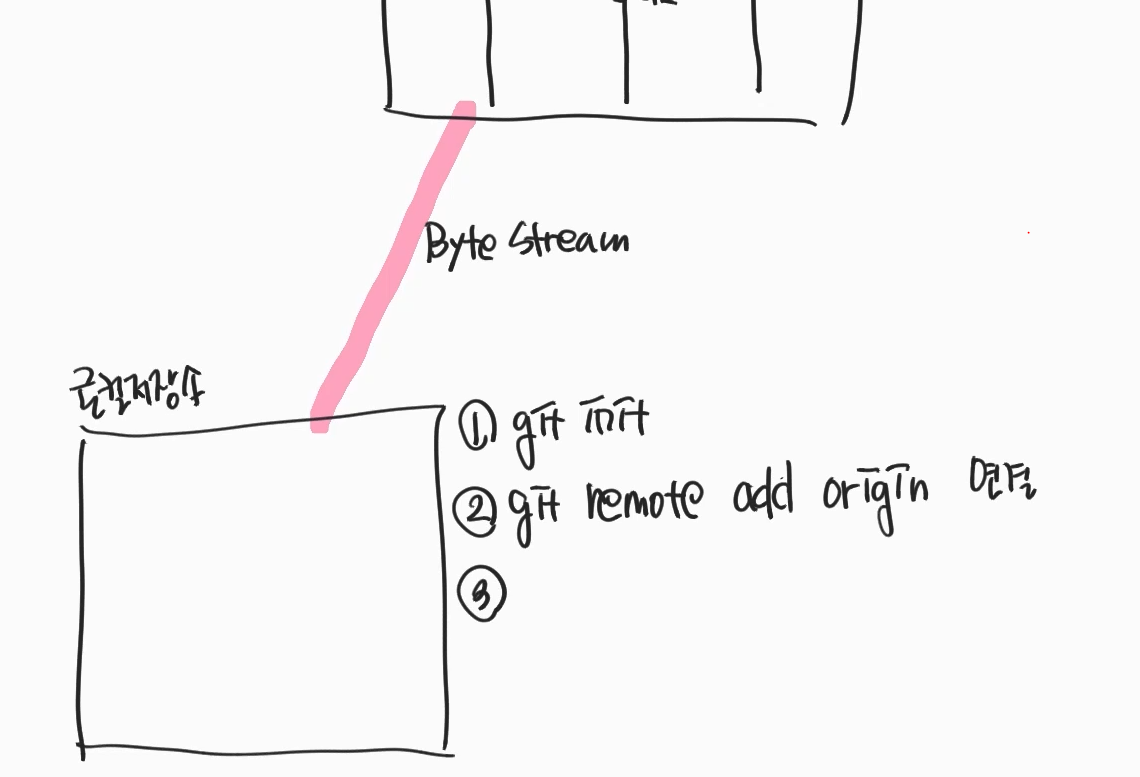 Byte Stream
로컬저장소
① git init
② git remote add origin 연결
③